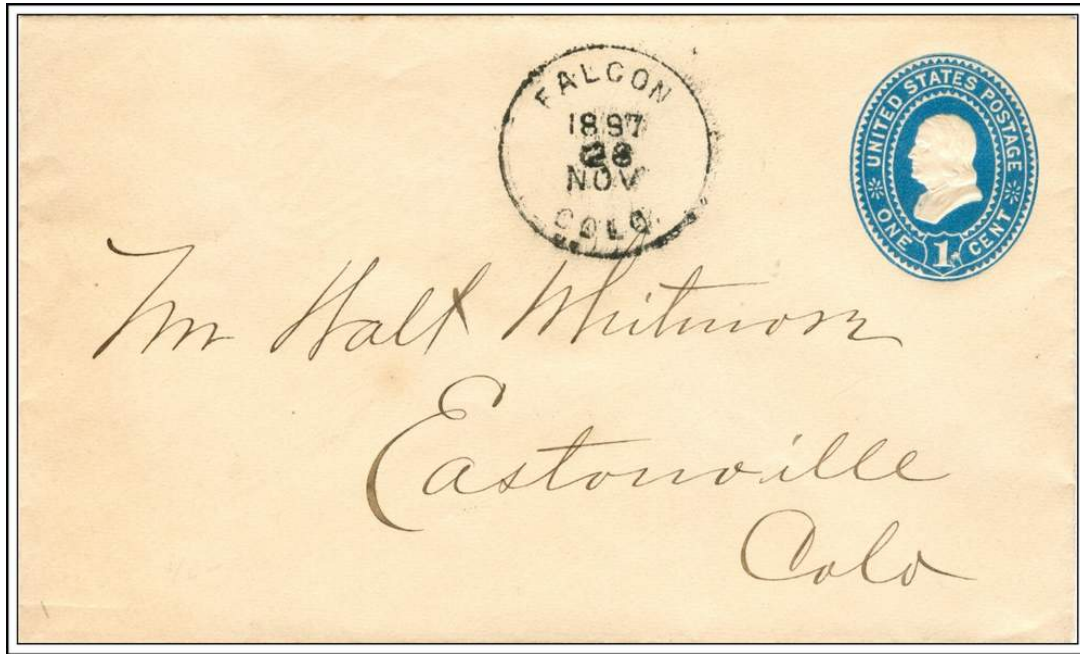 FALCON
1897
NOV
COLO.
UNITED STATES POSTAGE
ONE 1 CENT
Mr Walt Whitmore
Eastonville
Colo